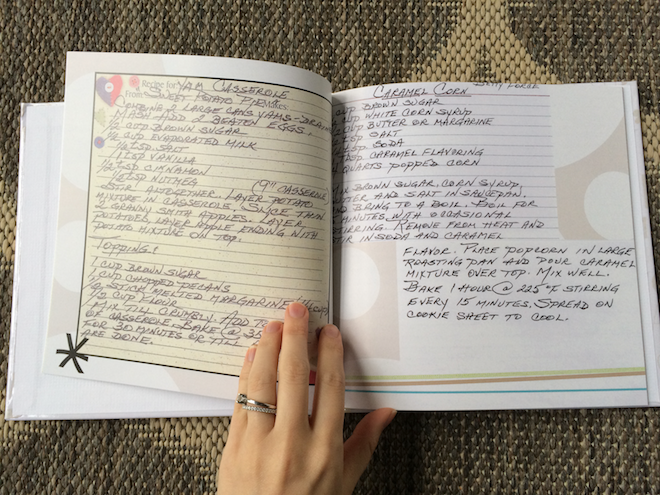 Recipe for: YAM CASSEROLE
From: SWEET POTATO PIE
COMBINE 2 LARGE CANS YAMS - DRAIN
MASH ADD 2 BEATEN EGGS,
CUP BROWN SUGAR
CUP EVAPORATED MILK
TSP SALT
TSP VANILLA
TSP CINNAMON
TSP NUTMEG
STIR ALTOGETHER. LAYER POTATO (9" CASSEROLE)
MIXTURE IN CASSEROLE. SLICE THIN
2 GRANNY SMITH APPLES. LAYER
POTATOES, LAYER APPLE ENDING WITH
POTATO MIXTURE ON TOP.
TOPPING:
1 CUP BROWN SUGAR
1 CUP CHOPPED PECANS
STICK MELTED MARGARINE
1/2 CUP FLOUR
MIX TILL CRUMBLY. ADD TO
OF CASSEROLE. BAKE @ 35
FOR 30 MINUTES OR TILL
ARE DONE.
BETTY
CARAMEL CORN
CUP BROWN SUGAR
CUP WHITE CORN SYRUP
CUP BUTTER OR MARGARINE
TSP SALT
TSP SODA
TSP CARAMEL FLAVORING
QUARTS POPPED CORN
MIX BROWN SUGAR, CORN SYRUP,
BUTTER AND SALT IN SAUCEPAN,
AND BRING TO A BOIL. BOIL FOR
MINUTES WITH OCCASIONAL
STIRRING. REMOVE FROM HEAT AND
STIR IN SODA AND CARAMEL
FLAVOR. PLACE POPCORN IN LARGE
ROASTING PAN AND POUR CARAMEL
MIXTURE OVER TOP. MIX WELL.
BAKE 1 HOUR @ 225°F STIRRING
EVERY 15 MINUTES. SPREAD ON
COOKIE SHEET TO COOL.